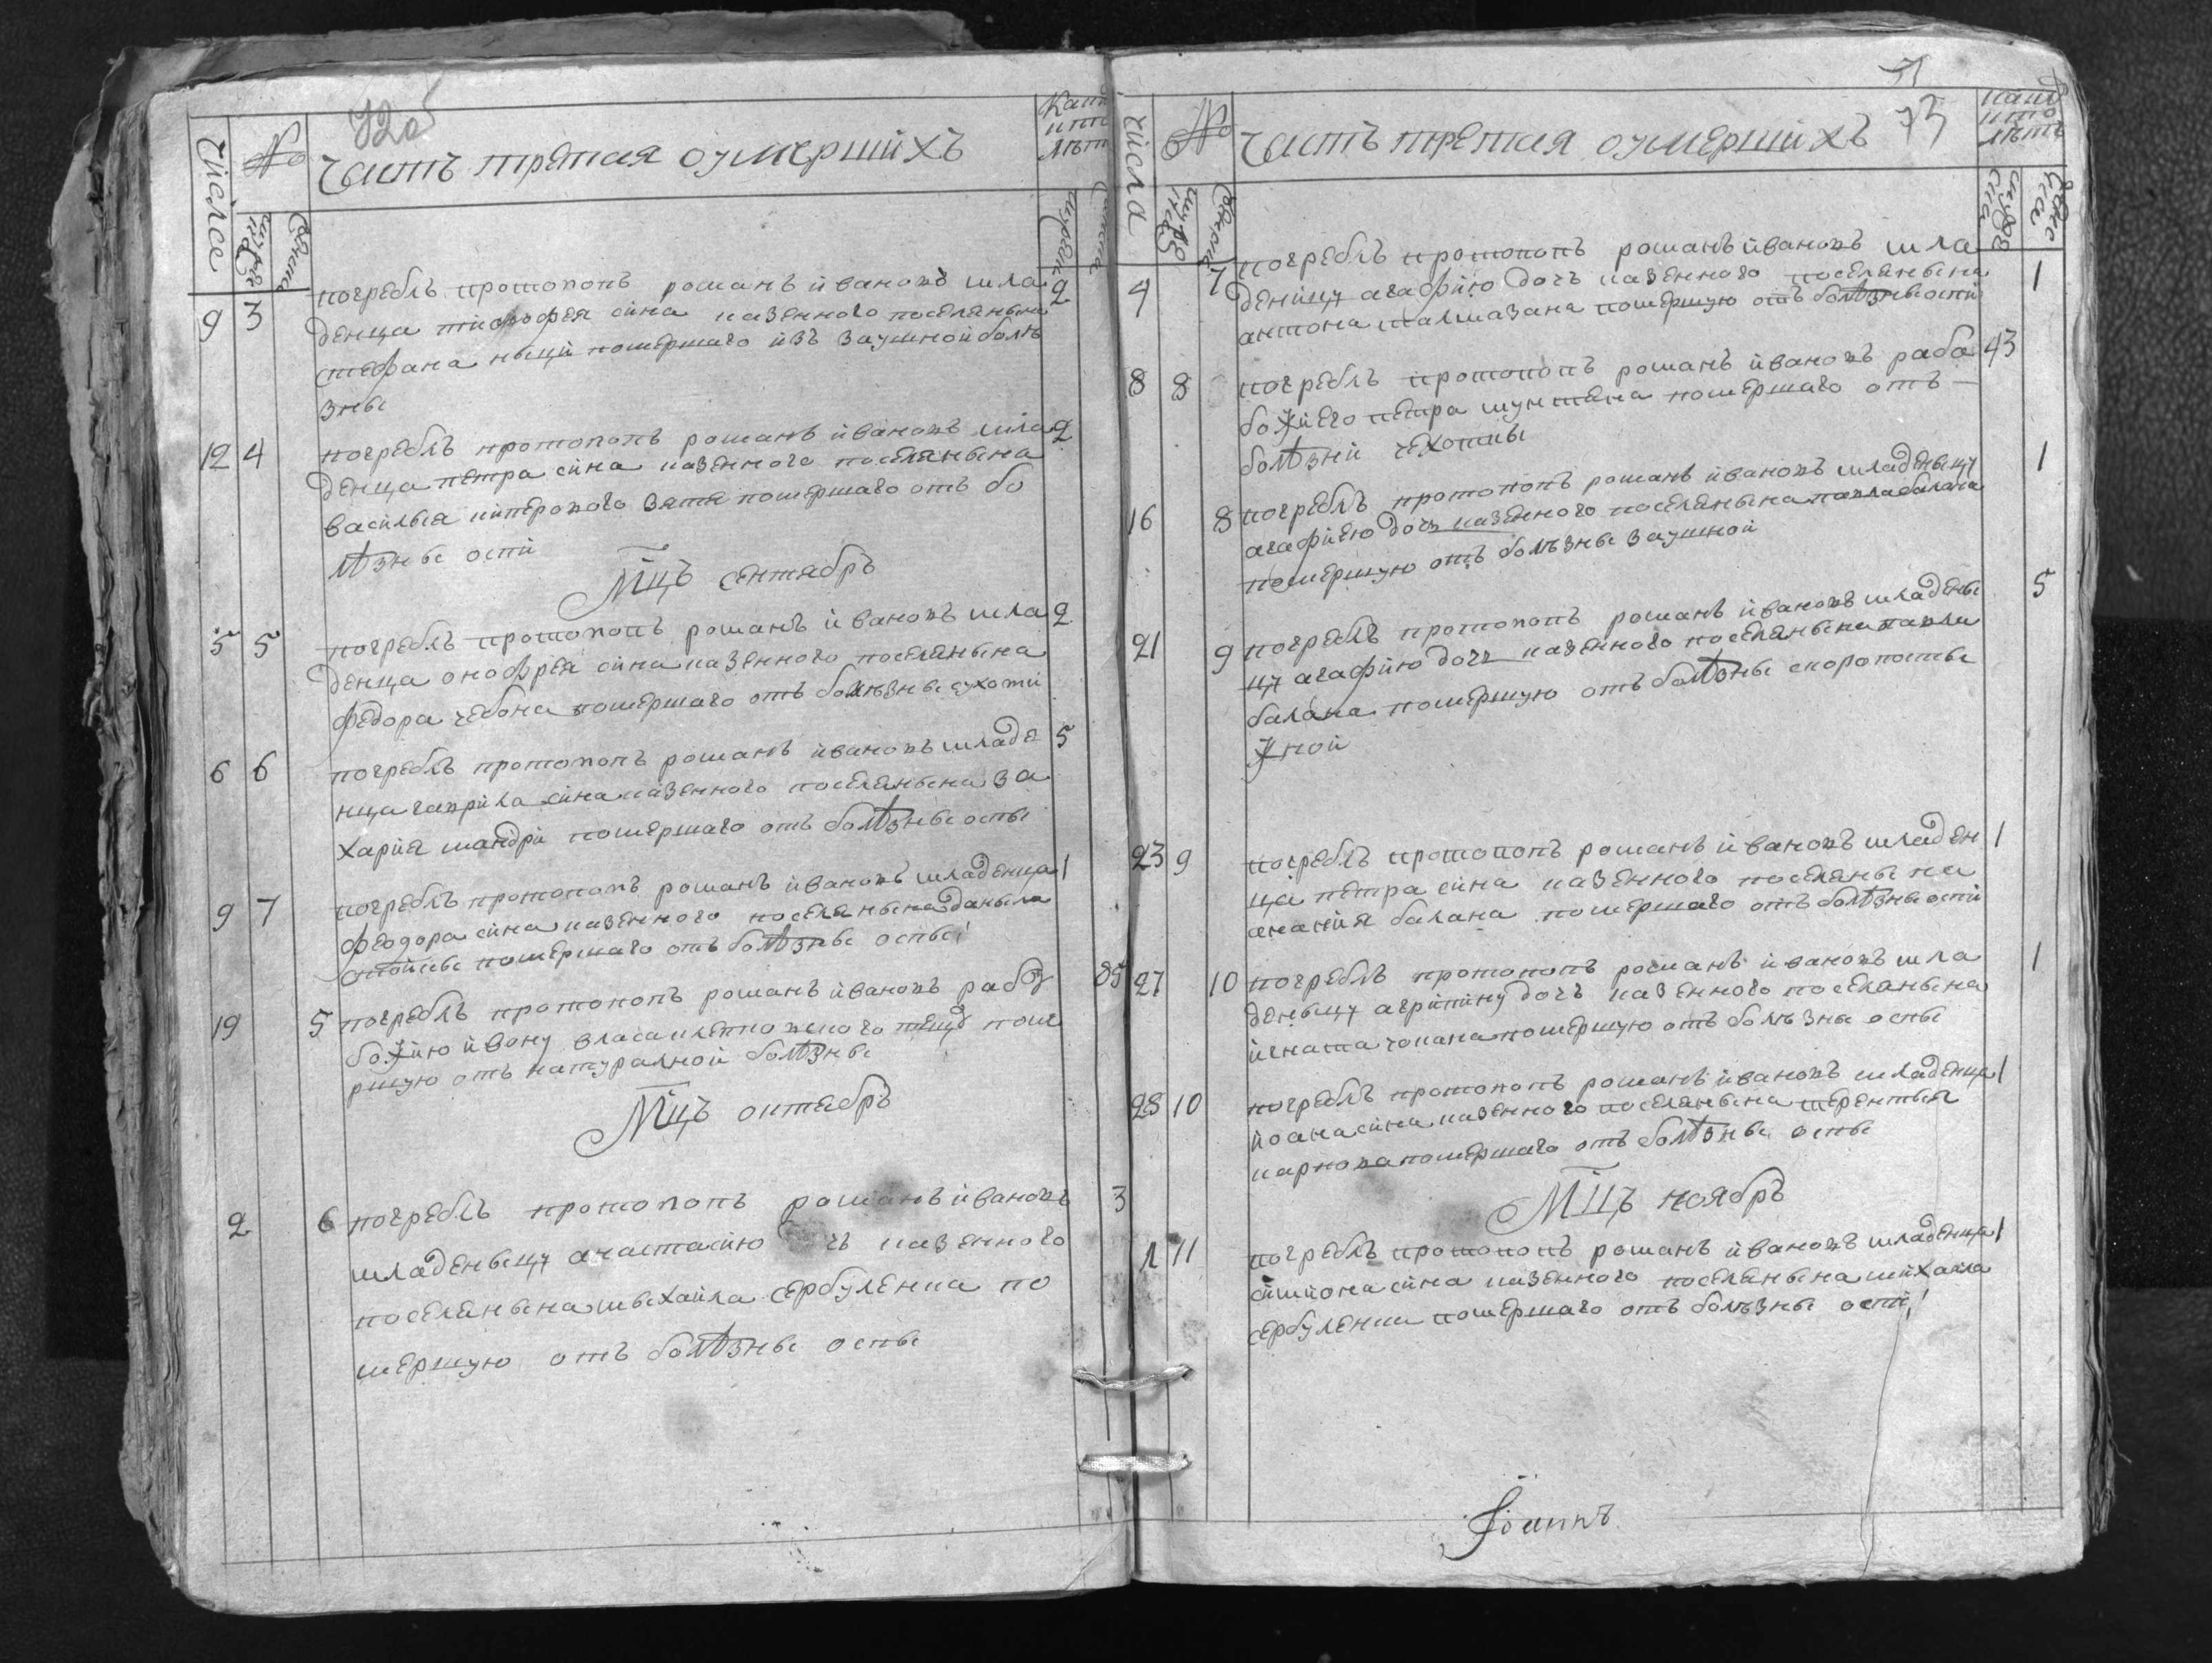 72об
числа
№
часть третая оумершихъ
каго
и кто
лѣтъ
мужеска
женска
9 3
погреблъ протопопъ романъ ивановъ мла 2
денца тимофея сина казенного поселянына
стефана ныци помершаго изъ заушной болѣ
зны
12 4
погреблъ протопопъ романъ ивановъ мла 2
денца петра сина казенного поселянына
василыя питерового зятя помершаго отъ бо
лѣзны оспи
Мцъ сентябръ
5 5
погреблъ протопопъ романъ ивановъ мла 2
денца онофрея сина казенного поселянына
федора чебона помершаго отъ болѣзны сухоти
6 6
погреблъ протопопъ романъ ивановъ младе 5
нца гаврила сина казенного поселянына за
хария мандри помершаго отъ болѣзны оспы
9 7
погреблъ протопопъ романъ ивановъ младенца 1
феодора сина казенного поселянына даныла
стойкы помершаго отъ болѣзны оспы
19 5
погреблъ протопопъ романъ ивановъ рабу 85
божию ивону власа тещу поме
ршую отъ натуралной болѣзны
Мцъ октябръ
2 6
погреблъ протопопъ романъ ивановъ 3
младеныцу анастасию чъ казенного
поселянына мыхайла сербуленка по
мершую отъ болѣзны оспы
73
числа
№
часть третая оумершихъ
мужеска
женска
4 7
погреблъ протопопъ романъ ивановъ мла
деницу агафию дочъ казенного поселянына 1
антона талмазана помершую отъ болѣзны оспи
8 8
погреблъ протопопъ романъ ивановъ раба 43
божиего петра мунтяна помершаго отъ
болѣзни чехотны
16 8
погреблъ протопопъ романъ ивановъ младеныцу 1
агафиею дочъ казенного поселянына павла балана
помершую отъ болѣзны заушной
21 9
погреблъ протопопъ романъ ивановъ младены 5
цу агафию дочъ казенного поселянына павла
балана помершую отъ болѣзны скоропосты
жной
23 9
погреблъ протопопъ романъ ивановъ младен 1
ца петра сина казенного поселянына
анания балана помершаго отъ болѣзны оспи
27 10
погреблъ протопопъ романъ ивановъ мла 1
деныцу агрипину дочъ казенного поселянына
игната чопана помершую отъ болѣзны оспы
28 10
погреблъ протопопъ романъ ивановъ младенца 1
иоана сина казенного поселянына терентыя
карнова помершаго отъ болѣзны оспы
Мцъ ноябръ
1 11
погреблъ протопопъ романъ ивановъ младенца 1
симиона сина казенного поселянына михаила
сербуленка помершаго отъ болѣзны оспи
Іоаннъ